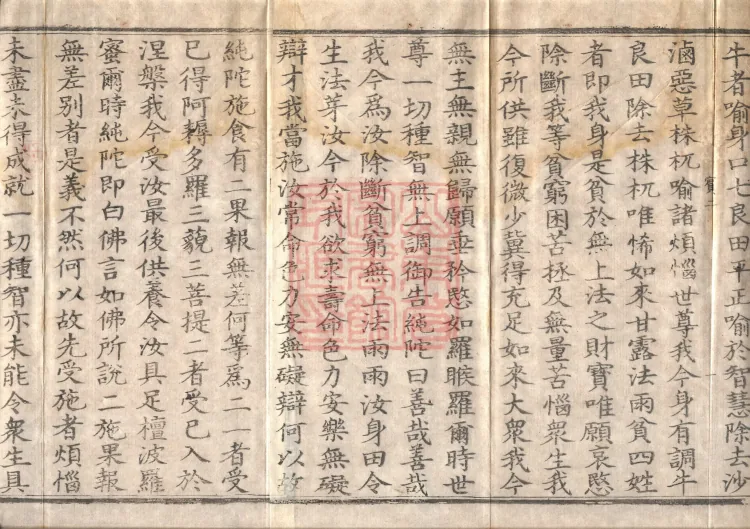 牛者喻身口七良田平正喻於智慧除去沙
滷惡草株杌喻諸煩惱世尊我今身有調牛
良田除去株杌唯悕如來甘露法雨貧四姓
者即我身是貧於無上法之財寶唯願哀愍
除斷我等貧窮困苦拯及無量苦惱衆生我
今所供雖復微少冀得充足如來大衆我今
無主無親無歸願垂矜愍如羅睺羅爾時世
尊一切種智無上調御告純陀曰善哉善哉
我今爲汝除斷貧窮無上法雨雨汝身田令
生法芽汝今於我欲求壽命色力安樂無礙
辯才我當施汝常命色力安無礙辯何以故
純陀施食有二果報無差何等爲二一者受
已得阿耨多羅三藐三菩提二者受已入於
涅槃我今受汝最後供養令汝具足檀波羅
蜜爾時純陀即白佛言如佛所說二施果報
無差別者是義不然何以故先受施者煩惱
未盡未得成就一切種智亦未能令衆生具